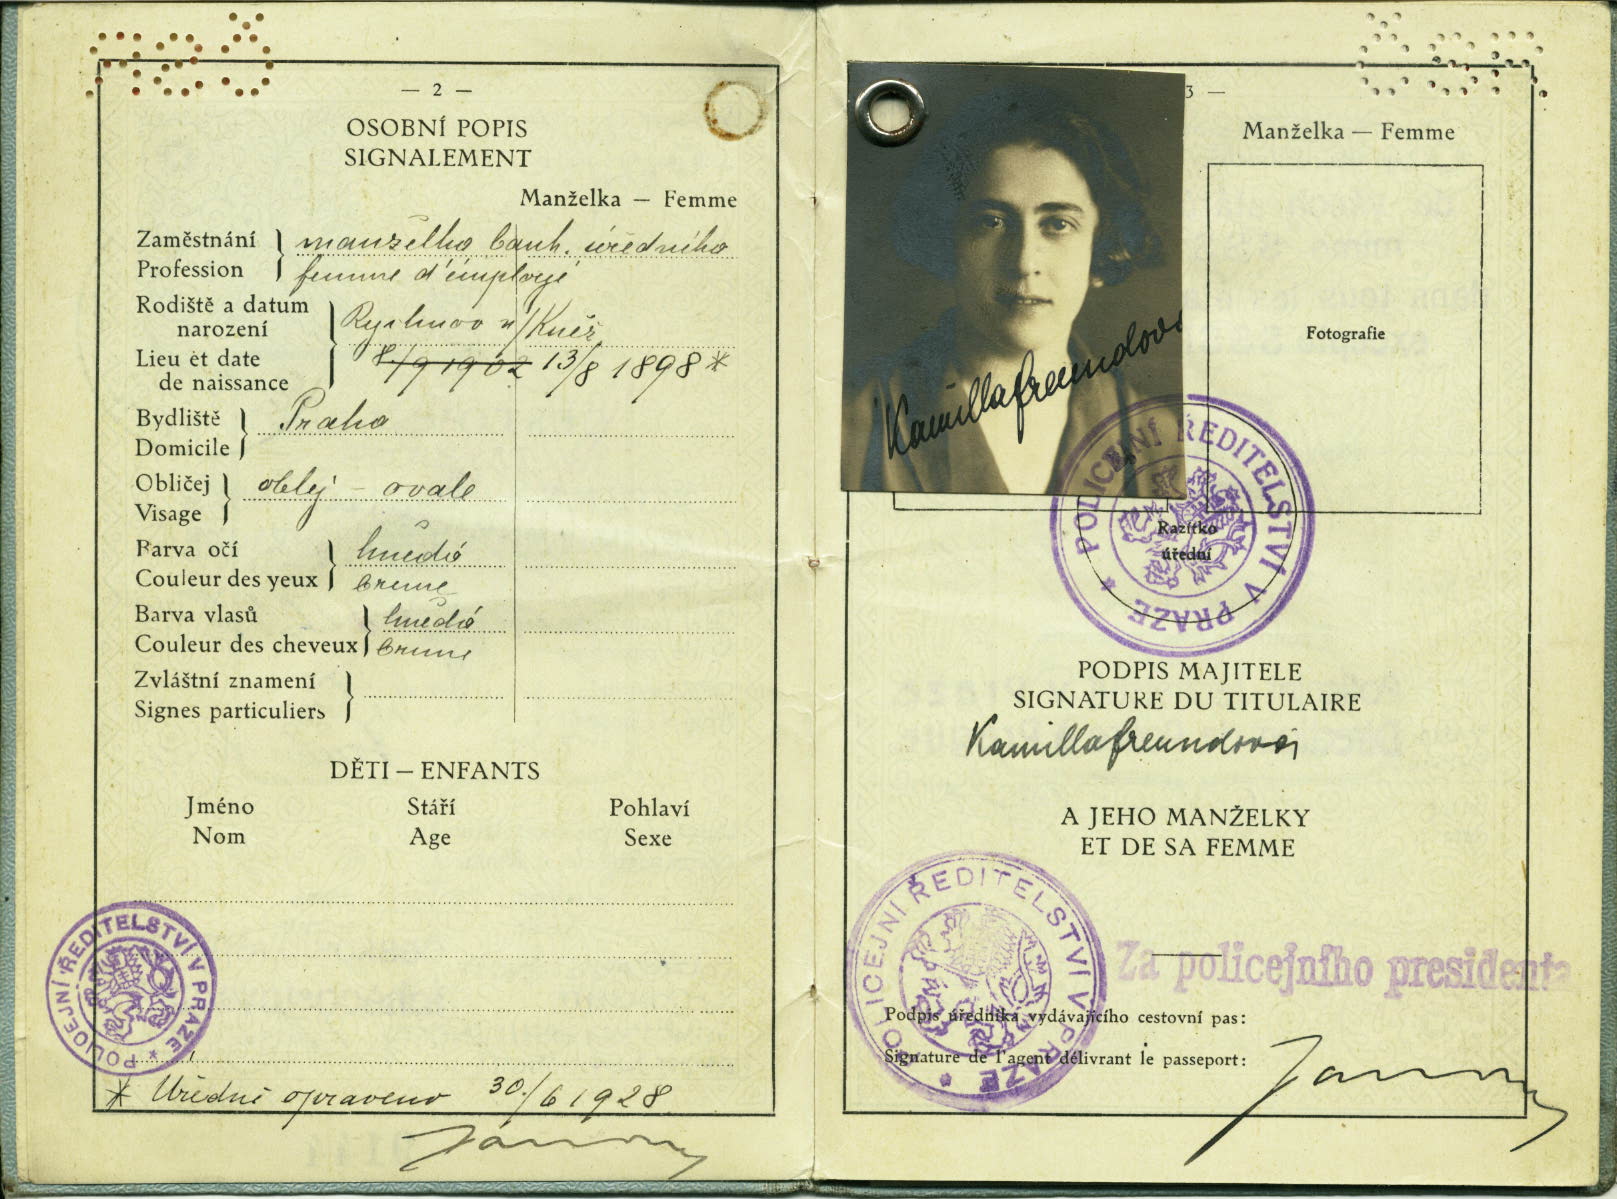 — 2 —
OSOBNÍ POPIS
SIGNALEMENT
Manželka — Femme
Zaměstnání
manželka bank. úředníka
Profession
femme d'employé
Rodiště a datum
narození
Rychnov n/Kněž.
Lieu et date
de naissance
8/9 1902 13/8 1898 *
Bydliště
Praha
Domicile
Obličej
oblej – ovale
Visage
Barva očí
hnědé
Couleur des yeux
brune
Barva vlasů
hnědé
Couleur des cheveux
brune
Zvláštní znamení
Signes particuliers
DĚTI — ENFANTS
Jméno Stáří Pohlaví
Nom Age Sexe
POLICEJNÍ ŘEDITELSTVÍ V PRAZE *
* Úředně opraveno 30./6 1928
3 —
Manželka — Femme
Fotografie
Kamilla Freundová
POLICEJNÍ ŘEDITELSTVÍ V PRAZE *
Razítko
úřední
PODPIS MAJITELE
SIGNATURE DU TITULAIRE
Kamilla Freundová
A JEHO MANŽELKY
ET DE SA FEMME
POLICEJNÍ ŘEDITELSTVÍ V PRAZE *
Za policejního presidenta
Podpis úředníka vydávajícího cestovní pas:
Signature de l'agent délivrant le passeport: